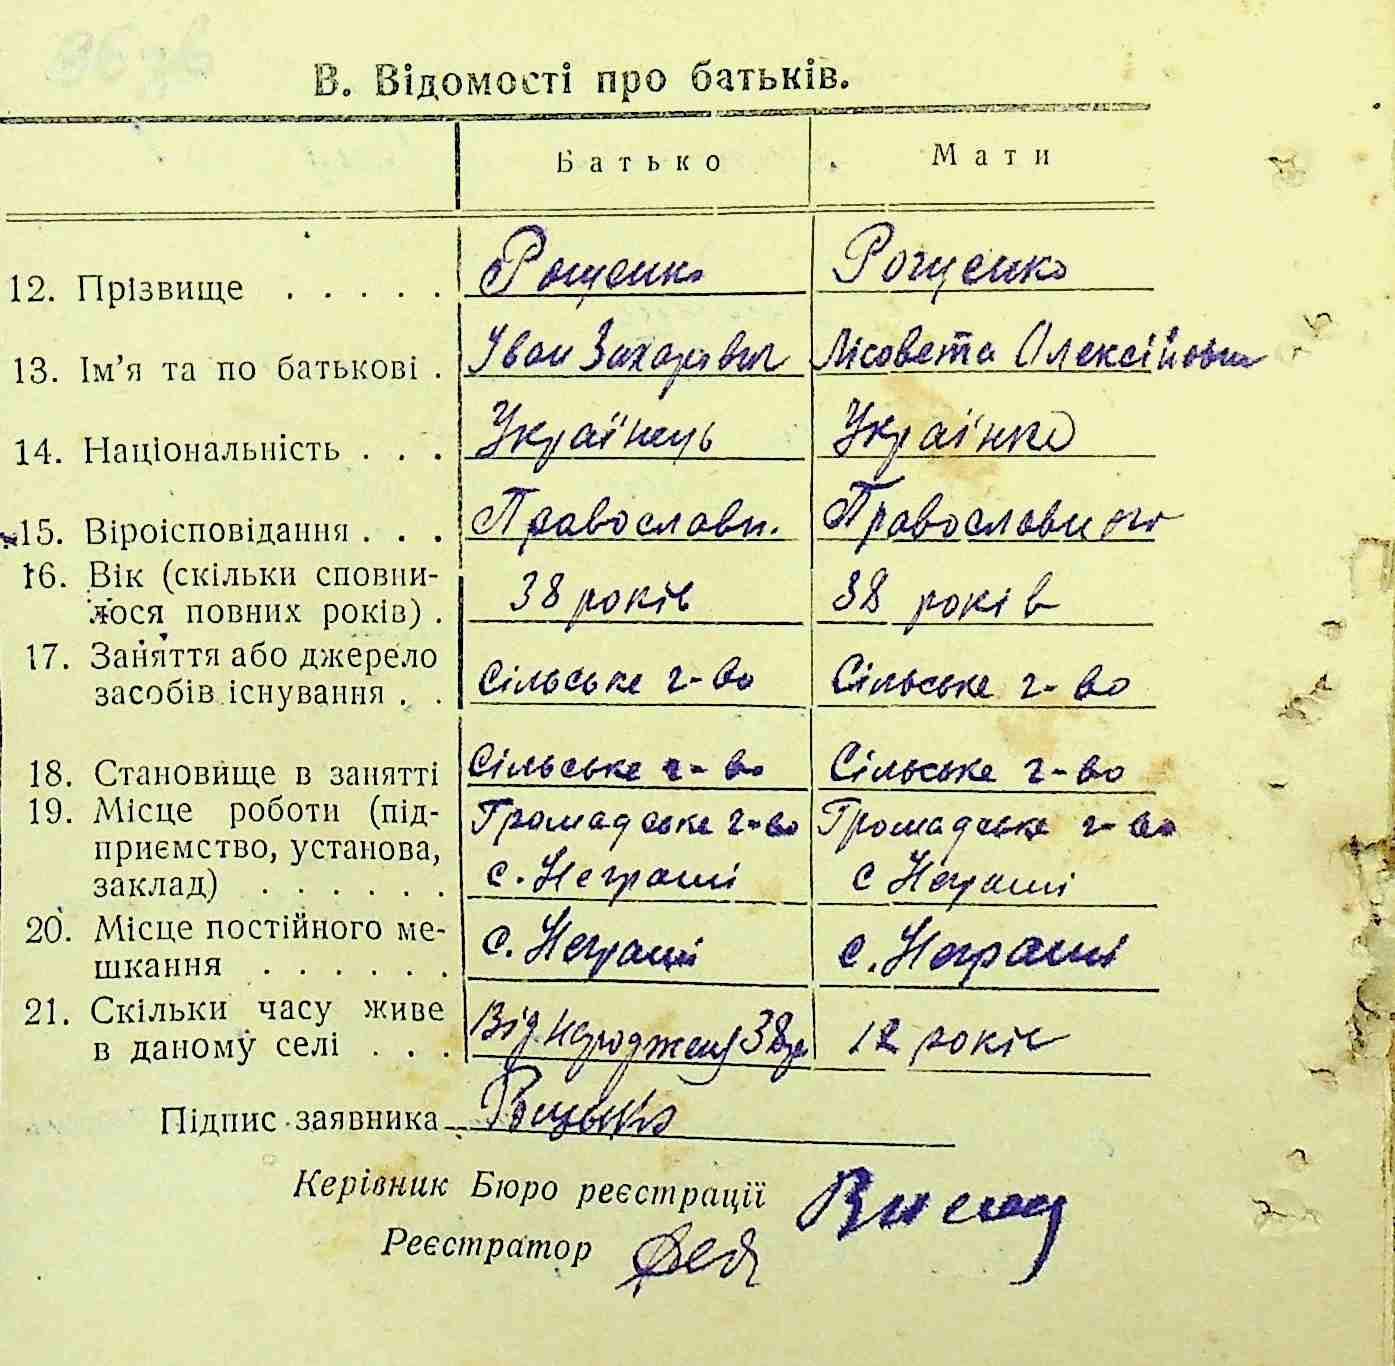 В. Відомості про батьків.
Батько Мати
12. Прізвище . . . . . Рощенко Рощенко
13. Ім'я та по батькові . Іван Захарович Лісовета Олексіївна
14. Національність . . . Українець Українка
15. Віроісповідання . . . Православн. Православною
16. Вік (скільки сповни-
лося повних років) . 38 років 38 років
17. Заняття або джерело
засобів існування . . Сільське г-во Сільське г-во
18. Становище в занятті Сільське г-во Сільське г-во
19. Місце роботи (під- Громадське г-во Громадське г-во
приємство, установа,
заклад) . . . . . . с. Неграші с Неграші
20. Місце постійного ме-
шкання . . . . . . с. Неграші с. Неграші
21. Скільки часу живе
в даному селі . . . Від народження 38 р 12 років
Підпис заявника
Керівник Бюро реєстрації
Реєстратор